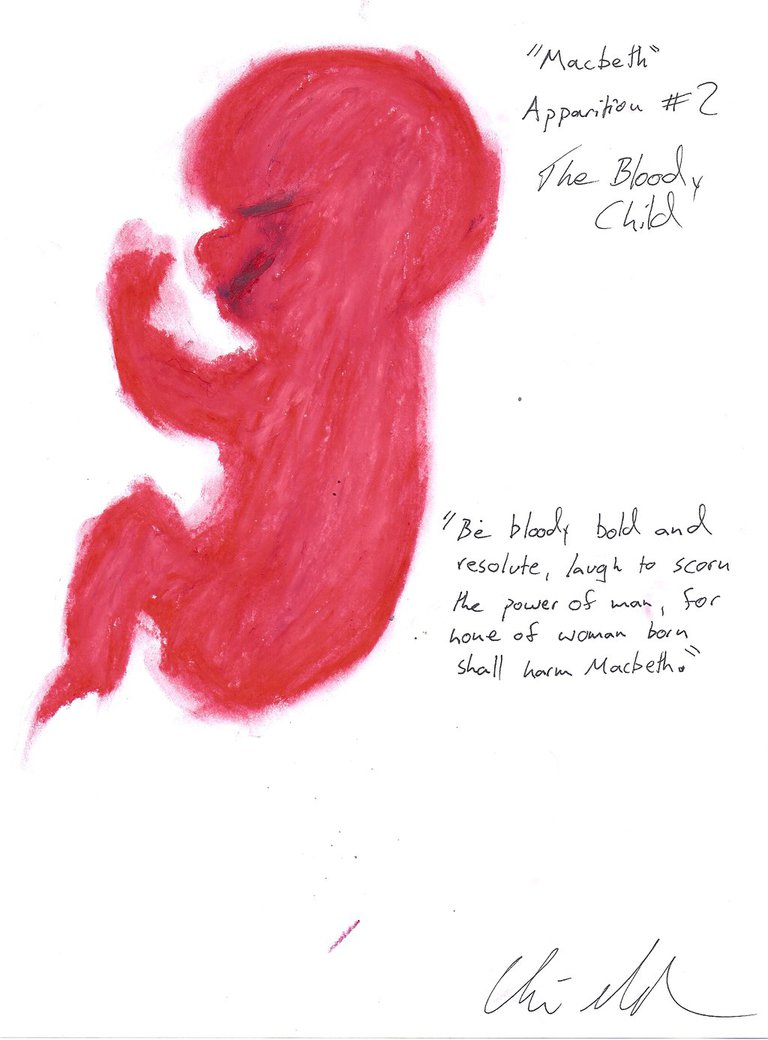 "Macbeth"
Apparition #2
The Bloody
Child
"Be bloody bold and
resolute, laugh to scorn
the power of man, for
none of woman born
shall harm Macbeth."